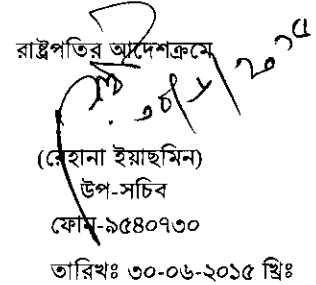 রাষ্ট্রপতির আদেশক্রমে
(রেহানা ইয়াছমিন)
উপ-সচিব
ফোন-৯৫৪০৭৩০
তারিখঃ ৩০-০৬-২০১৫ খ্রিঃ